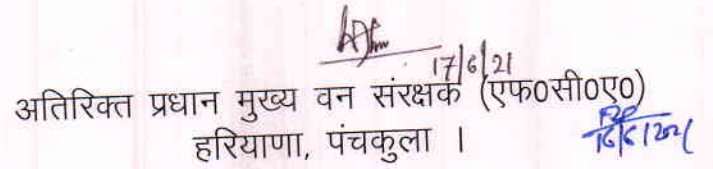 17/6/21
अतिरिक्त प्रधान मुख्य वन संरक्षक (एफ0सी0ए0)
हरियाणा, पंचकुला ।
16/6/2021